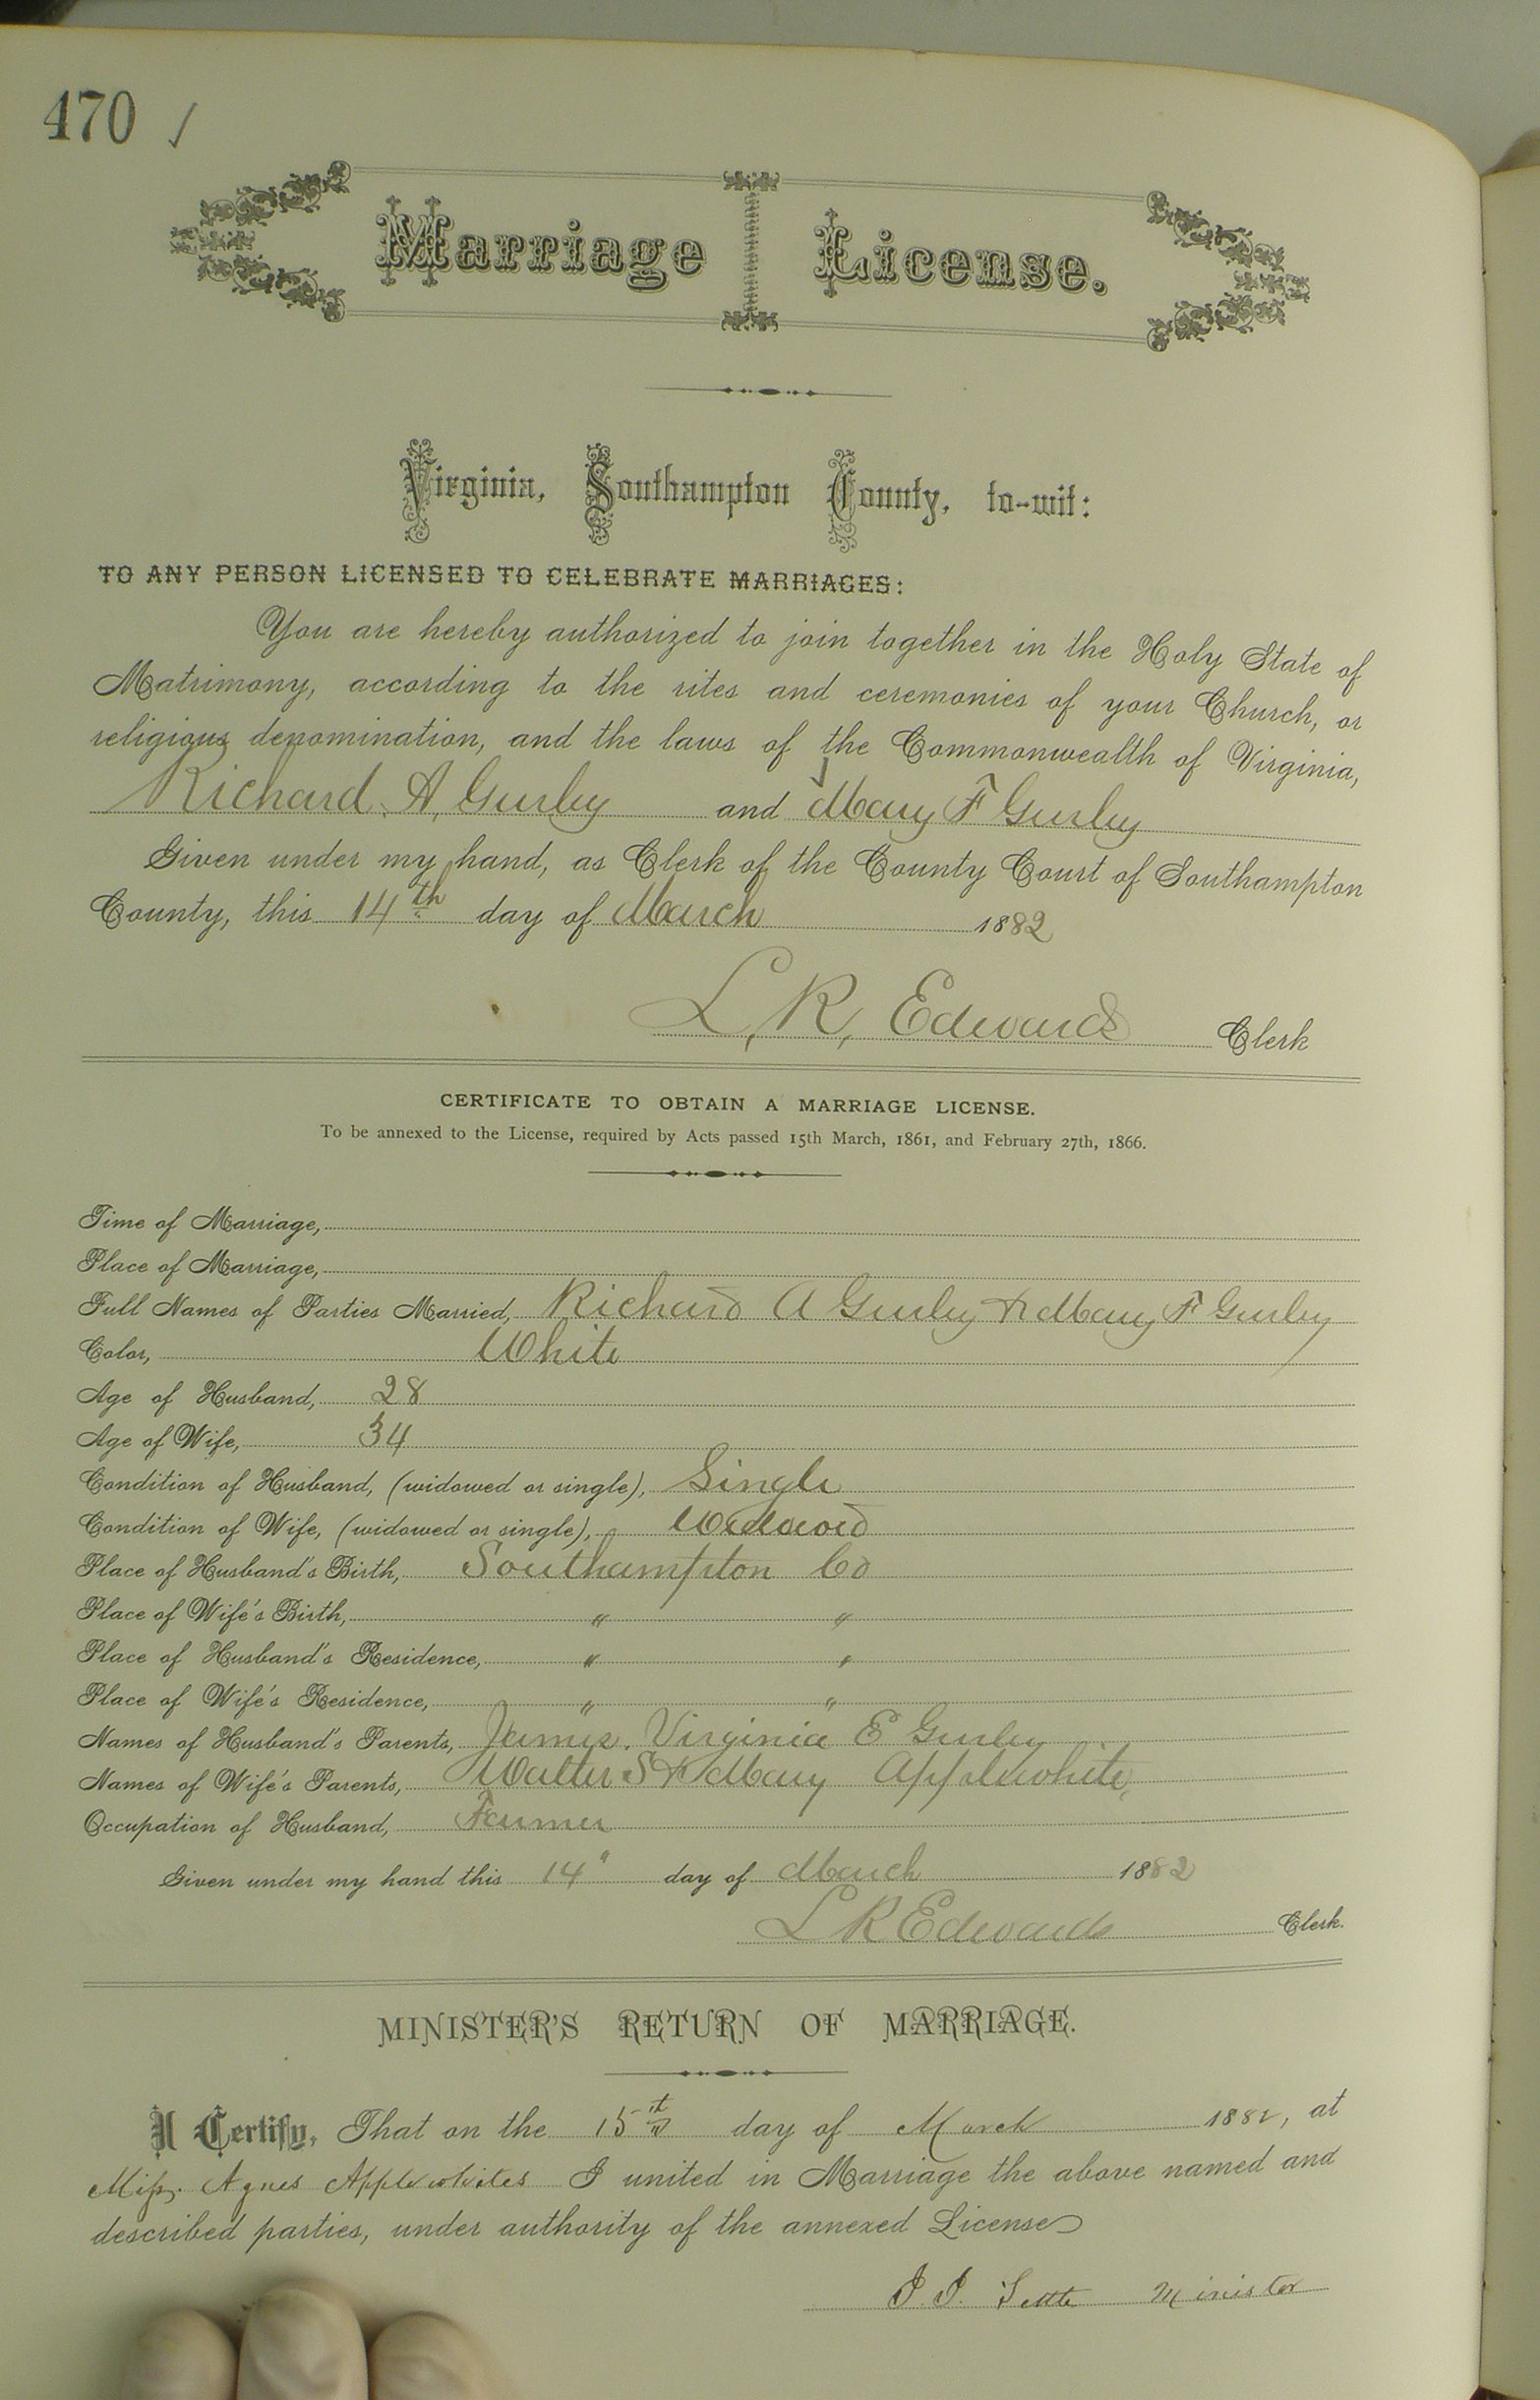 470 /
Marriage License.
Virginia, Southampton County, to-wit:
TO ANY PERSON LICENSED TO CELEBRATE MARRIAGES:
You are hereby authorized to join together in the Holy State of
Matrimony, according to the rites and ceremonies of your Church, or
religious denomination, and the laws of the Commonwealth of Virginia,
Richard A, Gurley and Mary F Gurley
Given under my hand, as Clerk of the County Court of Southampton
County, this 14th day of March 1882
L, R, Edwards Clerk
CERTIFICATE TO OBTAIN A MARRIAGE LICENSE.
To be annexed to the License, required by Acts passed 15th March, 1861, and February 27th, 1866.
Time of Marriage,
Place of Marriage,
Full Names of Parties Married, Richard A Gurley & Mary F Gurley
Color, White
Age of Husband, 28
Age of Wife, 34
Condition of Husband, (widowed or single), Single
Condition of Wife, (widowed or single), Widowed
Place of Husband's Birth, Southampton Co
Place of Wife's Birth, " "
Place of Husband's Residence, " "
Place of Wife's Residence, " "
Names of Husband's Parents, Virginia E Gurley
Names of Wife's Parents, Walter S & Mary Applewhite
Occupation of Husband, Farmer
Given under my hand this 14" day of March 1882
L R Edwards Clerk.
MINISTER'S RETURN OF MARRIAGE.
I Certify, That on the 15th day of March 1882, at
Miss. Agnes Applewhites I united in Marriage the above named and
described parties, under authority of the annexed License
Minister